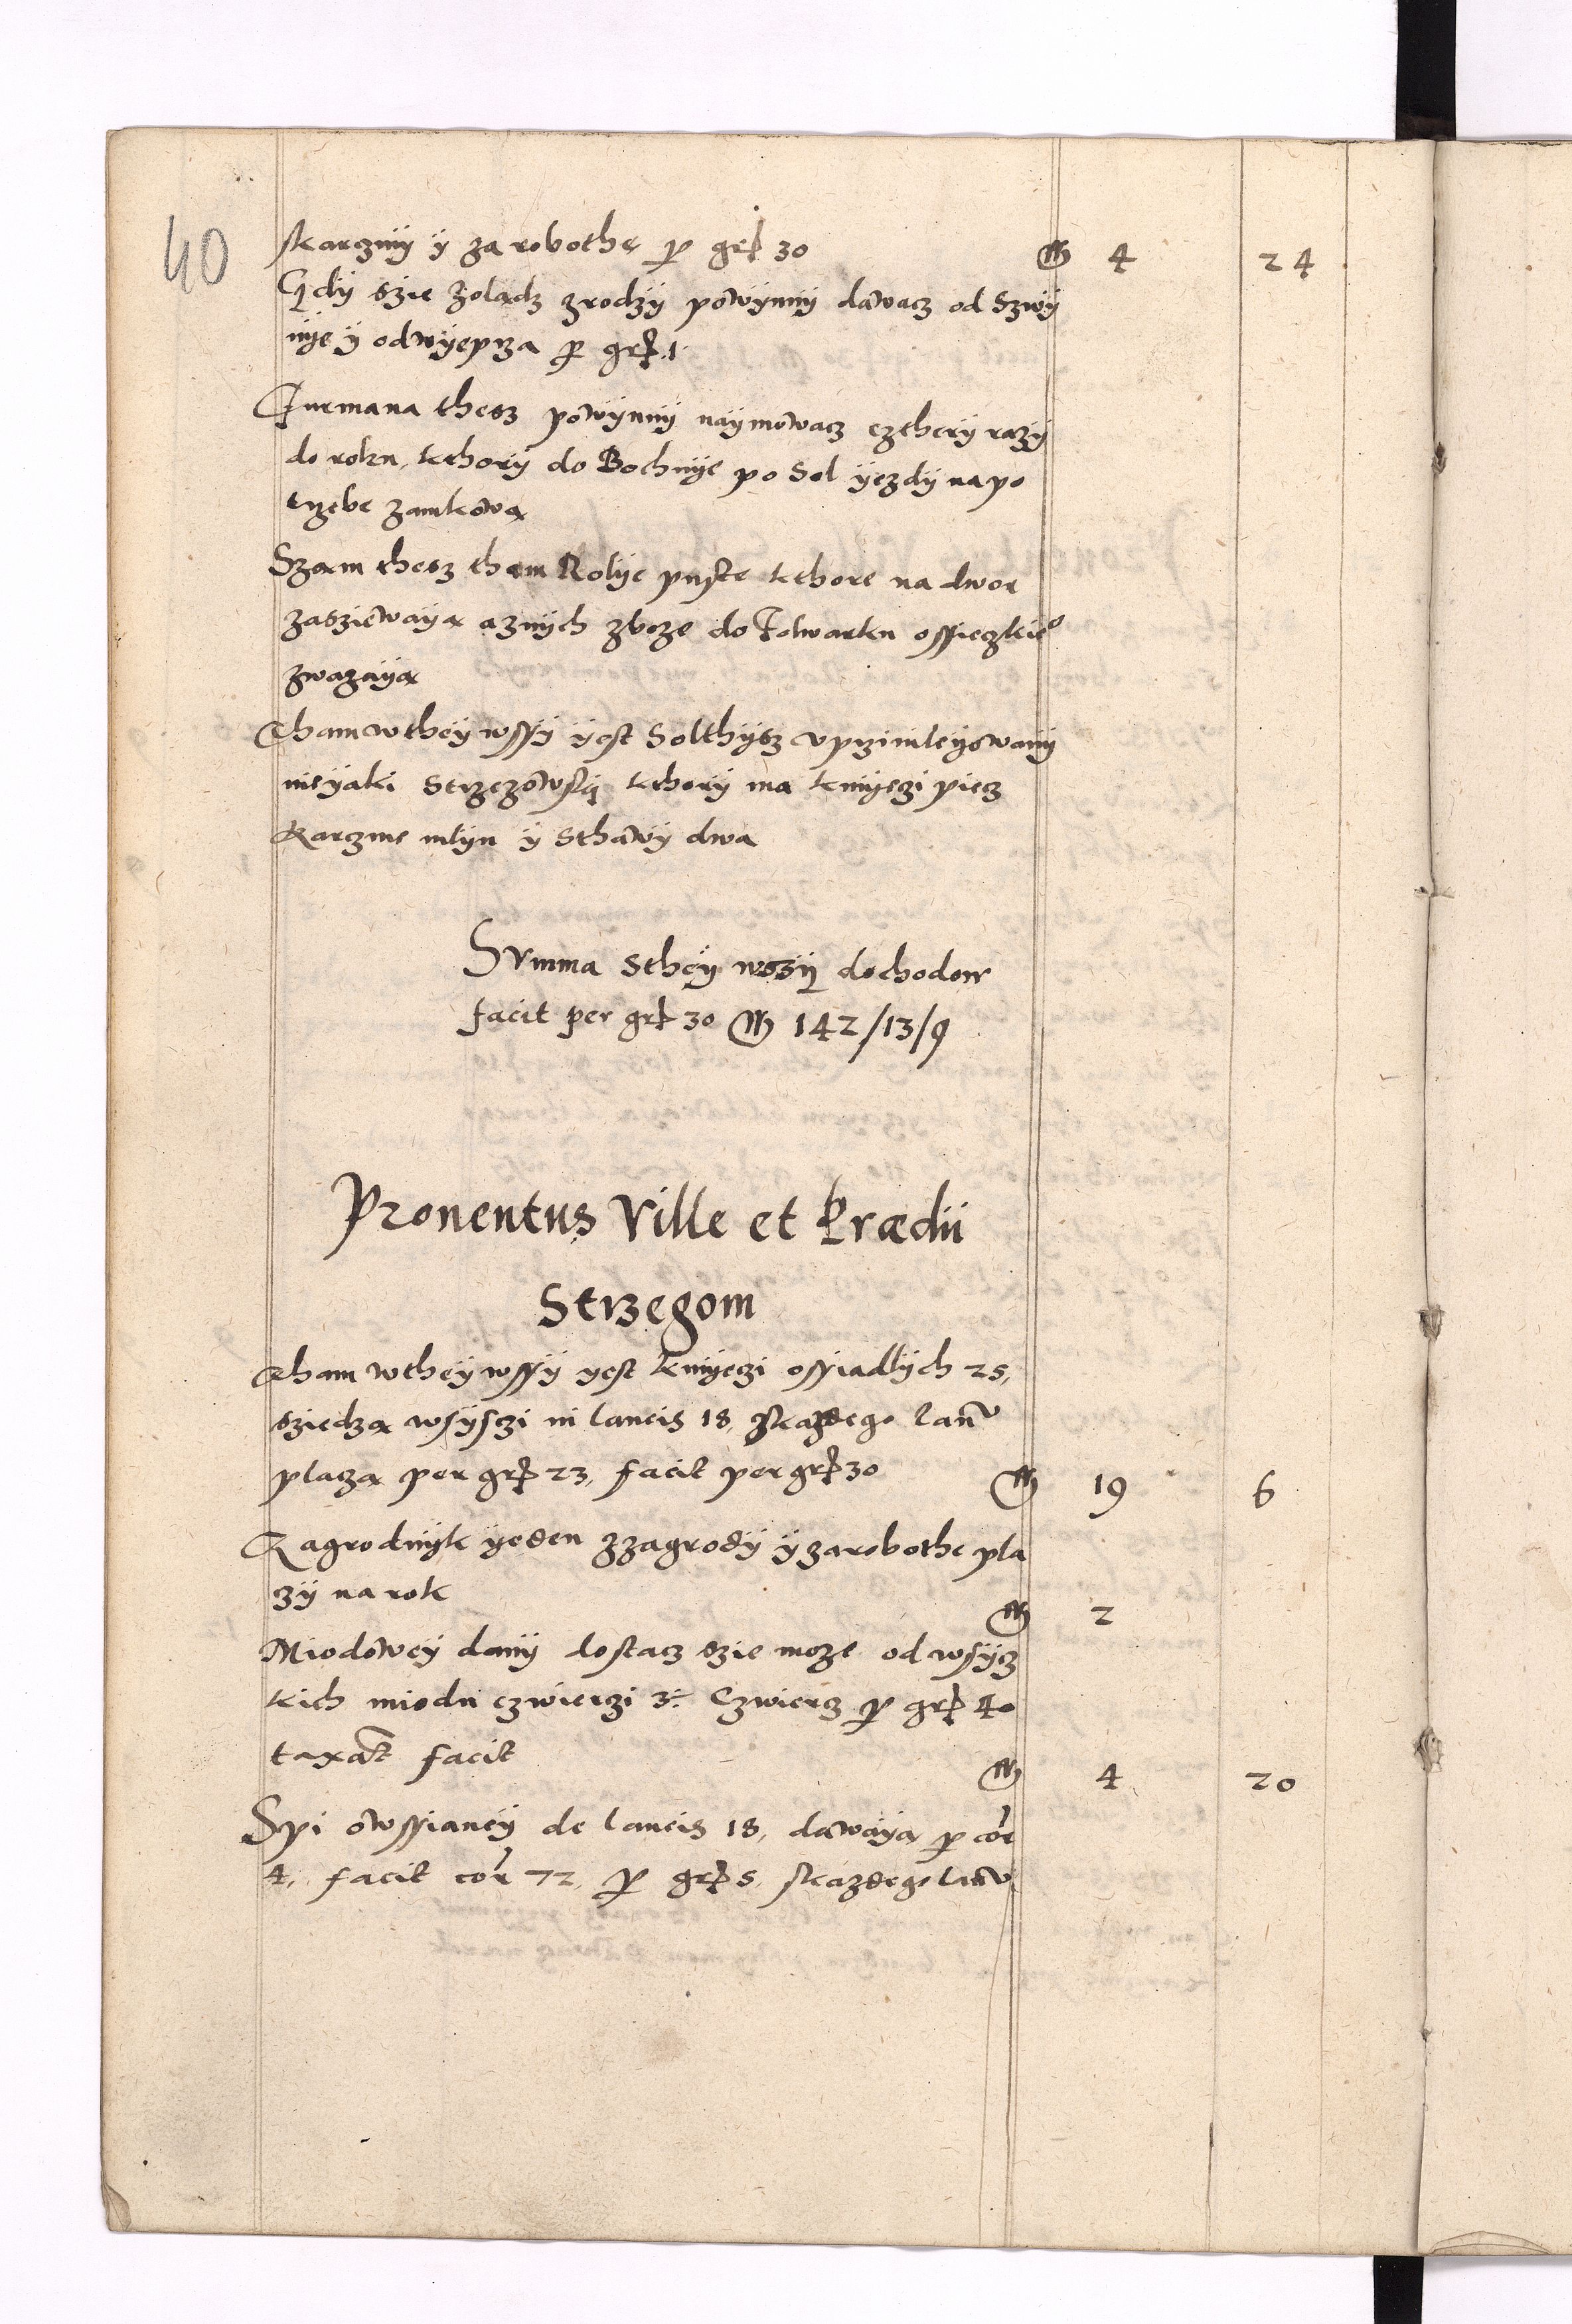 40
skarczmy y za robothę p gr 30 M 4 24
Gdy szie żolądz zrodzy powynny dawacz od Szwy
nye y od wyeprza p gr 1
Furmana thesz powynny naymowacz czthery razy
do roku, kthory do Bochnye po Sol yezdy na po
trzebe zamkowa
Szam thesz tham Rolye puste kthore na dwor
zasziewayą a znych zboze do Folwarku ossieczkie°
zwazayą
Tham w they wssy yest Solthysz vprziwileyowany
nieyaki Strzezowsky kthory ma kmyeczi piecz
Karczme mlyn y Sthawy dwa
Summa Sthey wszy dochodow
facit per gr 30 M 142/13/9
Prouentus Ville et Prædii
Strzegom
Tham w they wssy yest kmyeczi ossiadlych 25,
sziedzą wsysczi in laneis 18, skazdego lanu
placzą per gr 23, facit per gr 30 M 19 6
Zagrodnyk yeden z zagrody y za robothe pla
czy na rok M 2
Miodowey dany dostacz szie moze od wsysz
kich miodu czwierczi 3÷ Czwiercz p gr 40
taxat facit M 4 20
Spi owssianey de laneis 18, dawayą p cor
4, facit cor 72, p gr 5 skazdego lanu